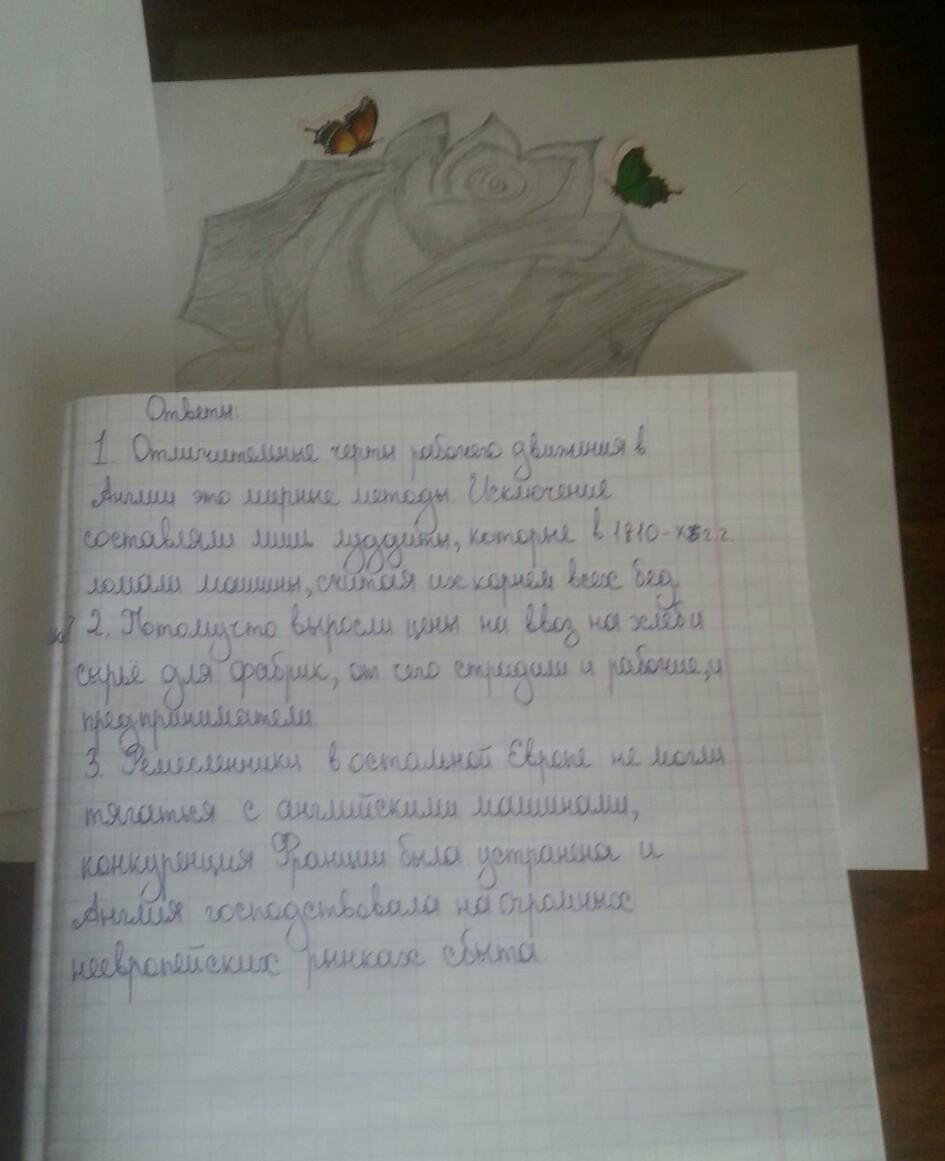 Ответы:
1. Отличительные черты рабочего движения в
Англии это мирные методы. Исключение
составляли лишь луддиты, которые в 1810-х г.г
ломали машины, считая их корнем всех бед.
2. Потомучто выросли цены на ввоз на хлеб и
сырьё для фабрик, от чего страдали и рабочие, и
предприниматели
3. Ремесленники в остальной Европе не могли
тягаться с английскими машинами,
конкуренция Франции была устранена и
Англия господствовала на огромных
неевропейских рынках сбыта.